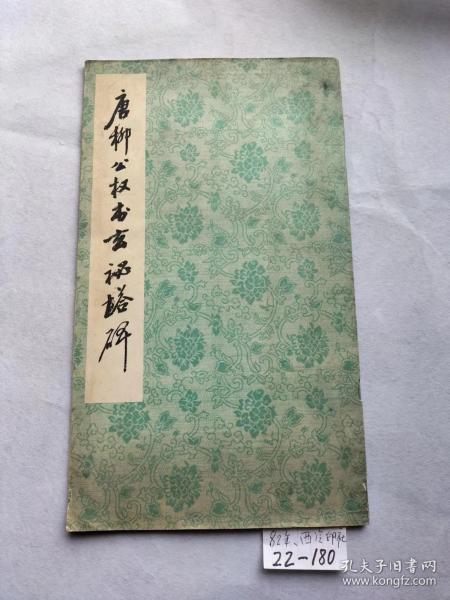 唐柳公权书玄祕塔碑
82年、西泠印社
22-180
孔夫子旧书网
www.kongfz.com